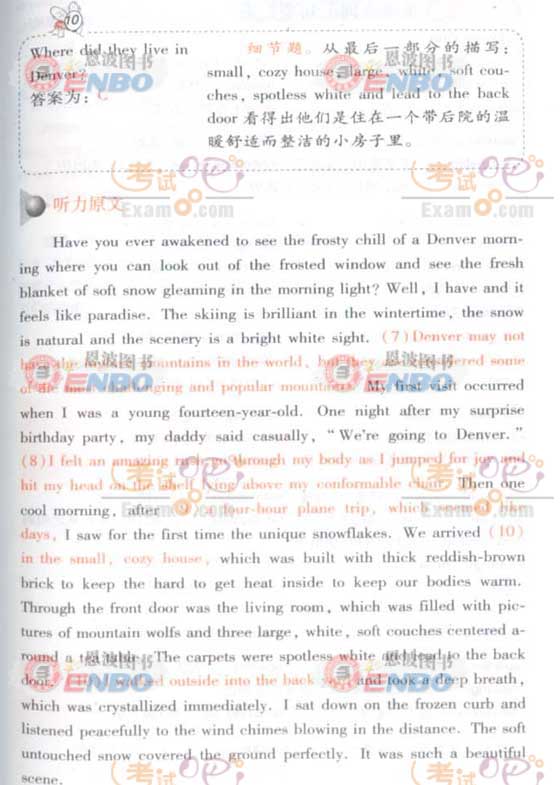 10
Where did they live in
Denver?
答案为：C
细节题。从最后一部分的描写：
small, cozy house, large, white, soft cou-
ches, spotless white and lead to the back
door 看得出他们是住在一个带后院的温
暖舒适而整洁的小房子里。
听力原文
Have you ever awakened to see the frosty chill of a Denver morn-
ing where you can look out of the frosted window and see the fresh
blanket of soft snow gleaming in the morning light? Well, I have and it
feels like paradise. The skiing is brilliant in the wintertime, the snow
is natural and the scenery is a bright white sight. (7) Denver may not
mountains in the world, but some
of the most challenging and popular mountains. My first visit occurred
when I was a young fourteen-year-old. One night after my surprise
birthday party, my daddy said casually, “We're going to Denver.”
(8) I felt an amazing rush go through my body as I jumped for joy and
hit my head on the shelf king above my conformable chair. Then one
cool morning, after a four-hour plane trip, which seemed like
days, I saw for the first time the unique snowflakes. We arrived (10)
in the small, cozy house, which was built with thick reddish-brown
brick to keep the hard to get heat inside to keep our bodies warm.
Through the front door was the living room, which was filled with pic-
tures of mountain wolfs and three large, white, soft couches centered a-
round a table. The carpets were spotless white and lead to the back
door. I walked outside into the back and took a deep breath,
which was crystallized immediately. I sat down on the frozen curb and
listened peacefully to the wind chimes blowing in the distance. The soft
untouched snow covered the ground perfectly. It was such a beautiful
scene.
恩波图书
ENBO
考试
Exam8.com